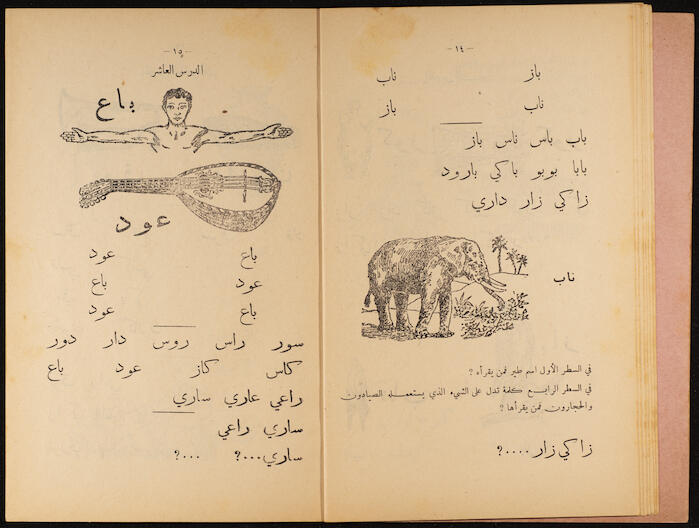 — ١٤ —
باز ناب
ناب باز
باب باس ناس باز
بابا بوبو باكي بارود
زاكي زار داري
ناب
في السطر الأول اسم طير فمن يقرأه ؟
في السطر الرابع كلمة تدل على الشيء الذي يستعمله الصيادون
والحجارون فمن يقرأها ؟
زاكي زار ....؟
— ١٥ —
الدرس العاشر
باع
عود
باع عود
عود باع
باع عود
سور راس روس دار دور
كاس كاز عود باع
راعي عاري ساري
ساري راعي
ساري...؟ ...؟